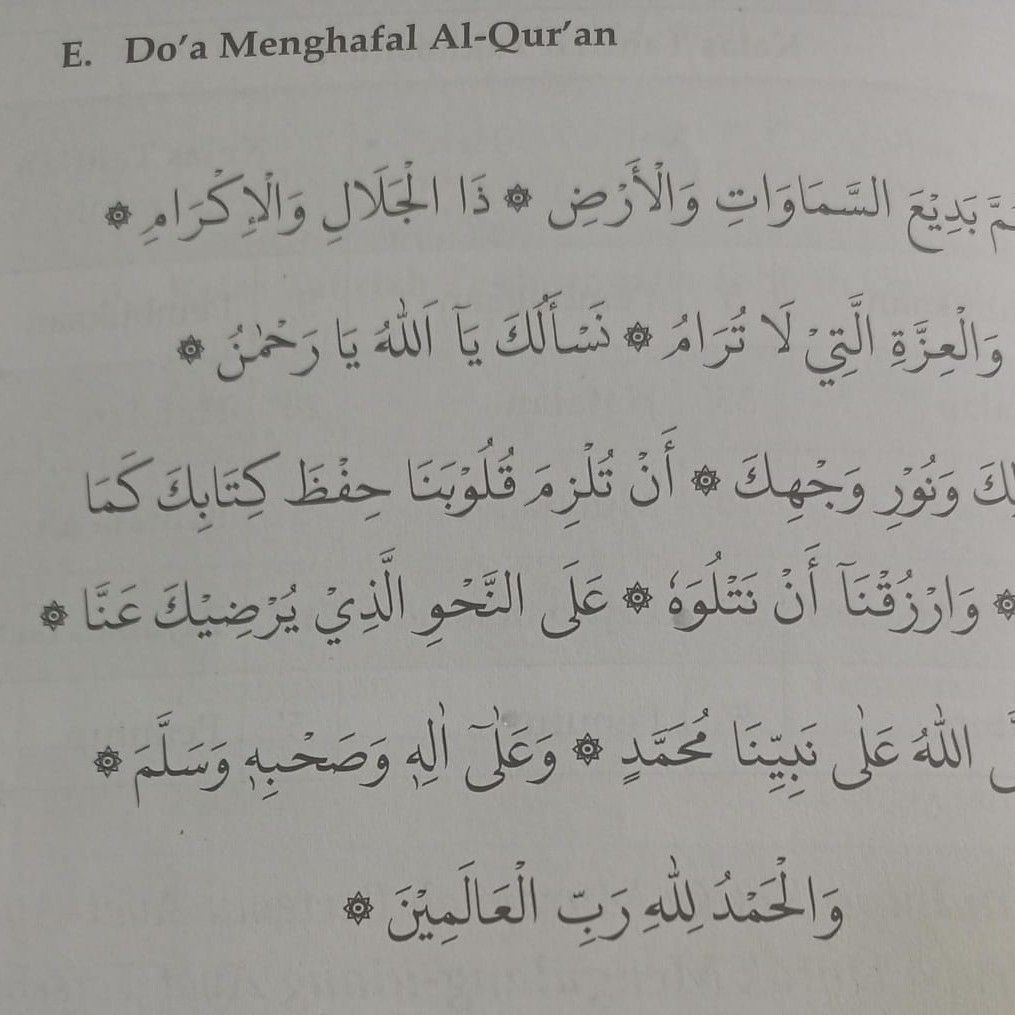 E. Do'a Menghafal Al-Qur'an
بَدِيْعَ السَّمَاوَاتِ وَالْأَرْضِ ۞ ذَا الْجَلَالِ وَالْإِكْرَامِ ۞
وَالْعِزَّةِ الَّتِيْ لَا تُرَامُ ۞ نَسْأَلُكَ يَآ اَللّٰهُ يَا رَحْمٰنُ ۞
وَنُوْرِ وَجْهِكَ ۞ أَنْ تُلْزِمَ قُلُوْبَنَا حِفْظَ كِتَابِكَ كَمَا
۞ وَارْزُقْنَآ أَنْ نَتْلُوَهٗ ۞ عَلَى النَّحْوِ الَّذِيْ يُرْضِيْكَ عَنَّا ۞
اللّٰهُ عَلٰى نَبِيِّنَا مُحَمَّدٍ ۞ وَعَلٰٓى اٰلِهٖ وَصَحْبِهٖ وَسَلَّمَ ۞
وَالْحَمْدُ لِلّٰهِ رَبِّ الْعَالَمِيْنَ ۞